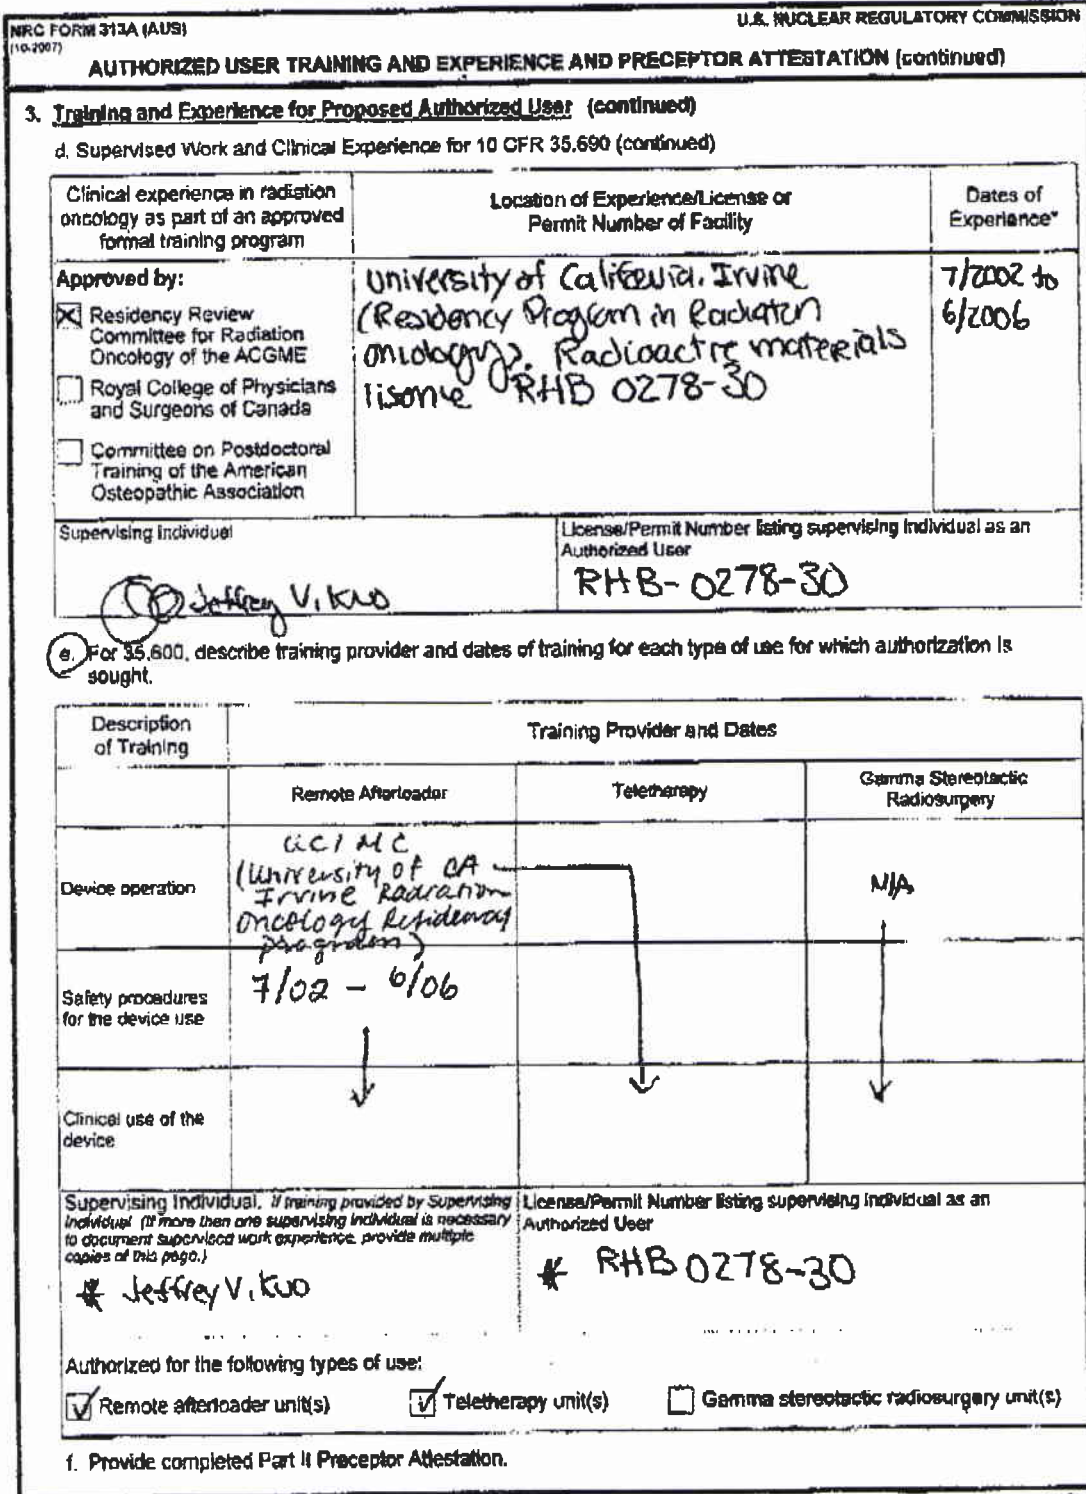 NRC FORM 313A (AUS)
(10-2007)
U.S. NUCLEAR REGULATORY COMMISSION
AUTHORIZED USER TRAINING AND EXPERIENCE AND PRECEPTOR ATTESTATION (continued)
3. Training and Experience for Proposed Authorized User (continued)
d. Supervised Work and Clinical Experience for 10 CFR 35.690 (continued)
Clinical experience in radiation
oncology as part of an approved
formal training program
Location of Experience/License or
Permit Number of Facility
Dates of
Experience*
Approved by:
Residency Review
Committee for Radiation
Oncology of the ACGME
Royal College of Physicians
and Surgeons of Canada
Committee on Postdoctoral
Training of the American
Osteopathic Association
University of California, Irvine
(Residency Program in Radiation
Oncology). Radioactive materials
license RHB 0278-30
7/2002 to
6/2006
Supervising Individual
Jeffrey V. Kuo
License/Permit Number listing supervising individual as an
Authorized User
RHB-0278-30
e. For 35.600, describe training provider and dates of training for each type of use for which authorization is
sought.
Description
of Training
Training Provider and Dates
Remote Afterloader
Teletherapy
Gamma Stereotactic
Radiosurgery
Device operation
UCIMC
(University of CA
Irvine Radiation
Oncology Residency
program)
N/A
Safety procedures
for the device use
7/02 - 6/06
Clinical use of the
device
Supervising Individual. If training provided by Supervising
Individual (If more then one supervising individual is necessary
to document supervised work experience, provide multiple
copies of this page.)
* Jeffrey V. Kuo
License/Permit Number listing supervising individual as an
Authorized User
* RHB 0278-30
Authorized for the following types of use:
Remote afterloader unit(s)
Teletherapy unit(s)
Gamma stereotactic radiosurgery unit(s)
f. Provide completed Part II Preceptor Attestation.